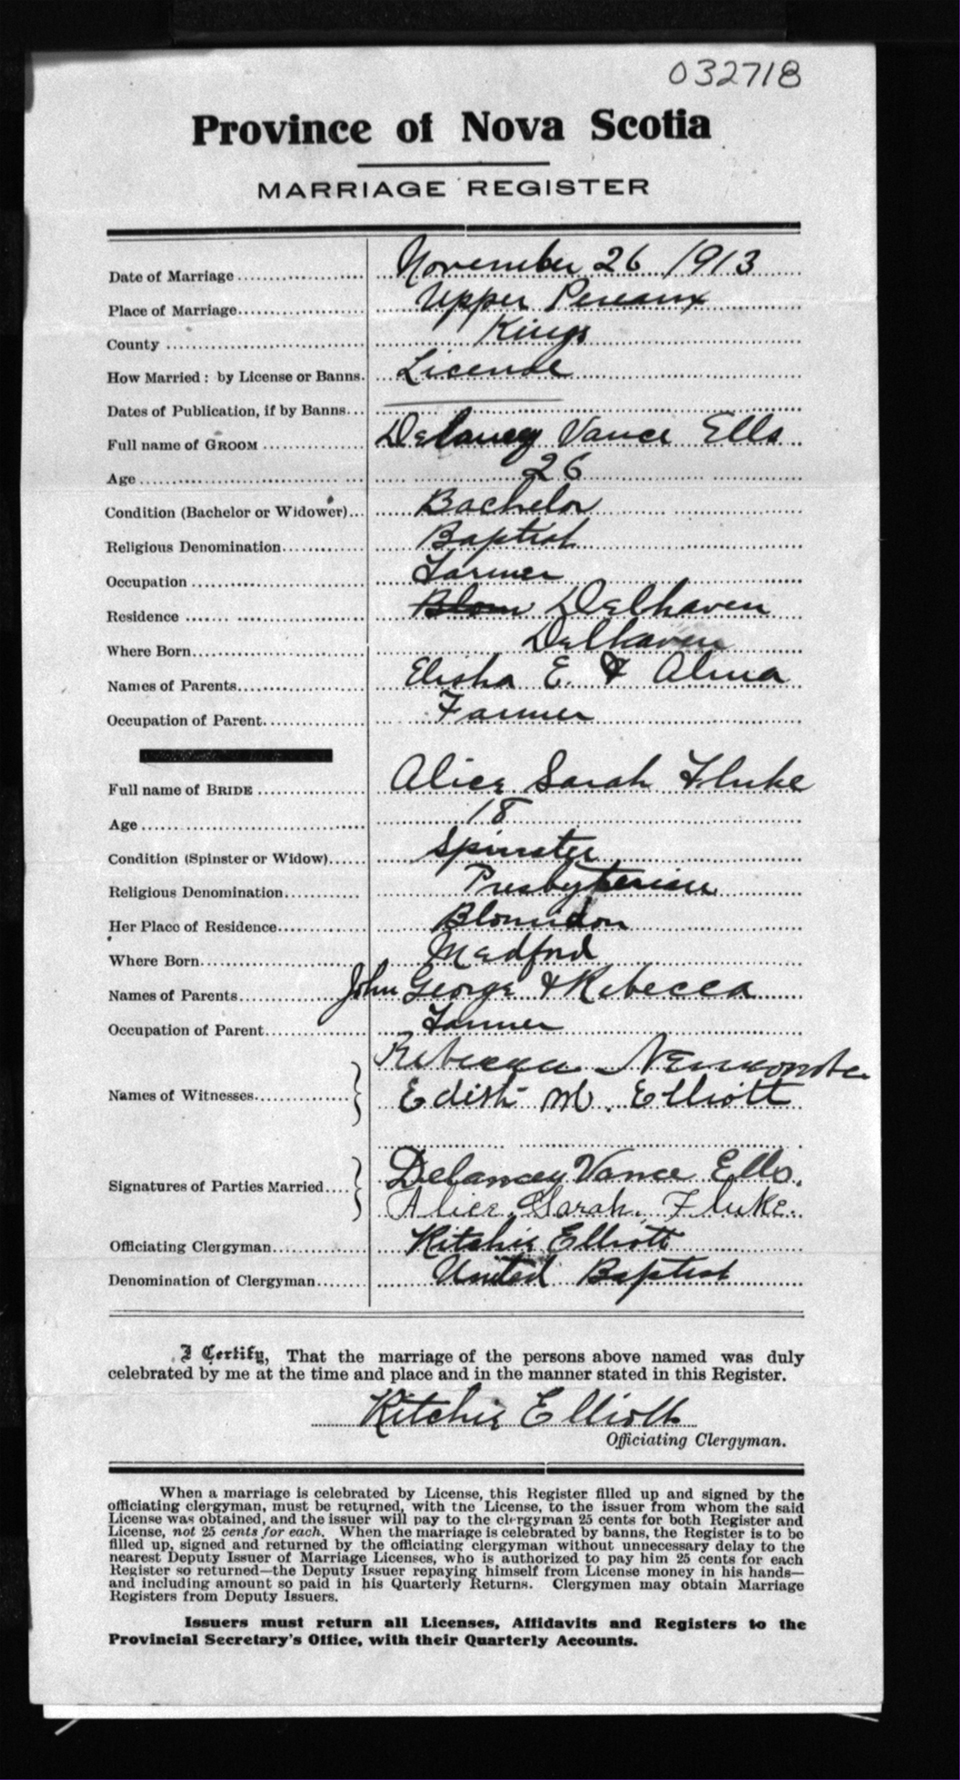 032718
Province of Nova Scotia
MARRIAGE REGISTER
Date of Marriage November 26 1913
Place of Marriage Upper Pereaux
County Kings
How Married: by License or Banns. License
Dates of Publication, if by Banns
Full name of GROOM Delancey Vance Ells
Age 26
Condition (Bachelor or Widower) Bachelor
Religious Denomination Baptist
Occupation Farmer
Residence Blom Delhaven
Where Born Delhaven
Names of Parents Elisha E. & Alma
Occupation of Parent Farmer
Full name of BRIDE Alice Sarah Fluke
Age 18
Condition (Spinster or Widow) Spinster
Religious Denomination Presbyterian
Her Place of Residence Blomidon
Where Born Medford
Names of Parents John George & Rebecca
Occupation of Parent Farmer
Rebecca
Names of Witnesses Edith M. Elliott
Signatures of Parties Married Delancey Vance Ells.
Alice Sarah Fluke.
Officiating Clergyman Ritchie Elliott
Denomination of Clergyman United Baptist
I Certify, That the marriage of the persons above named was duly
celebrated by me at the time and place and in the manner stated in this Register.
Ritchie Elliott
Officiating Clergyman.
When a marriage is celebrated by License, this Register filled up and signed by the
officiating clergyman, must be returned, with the License, to the issuer from whom the said
License was obtained, and the issuer will pay to the clergyman 25 cents for both Register and
License, not 25 cents for each. When the marriage is celebrated by banns, the Register is to be
filled up, signed and returned by the officiating clergyman without unnecessary delay to the
nearest Deputy Issuer of Marriage Licenses, who is authorized to pay him 25 cents for each
Register so returned—the Deputy Issuer repaying himself from License money in his hands—
and including amount so paid in his Quarterly Returns. Clergymen may obtain Marriage
Registers from Deputy Issuers.
Issuers must return all Licenses, Affidavits and Registers to the
Provincial Secretary's Office, with their Quarterly Accounts.